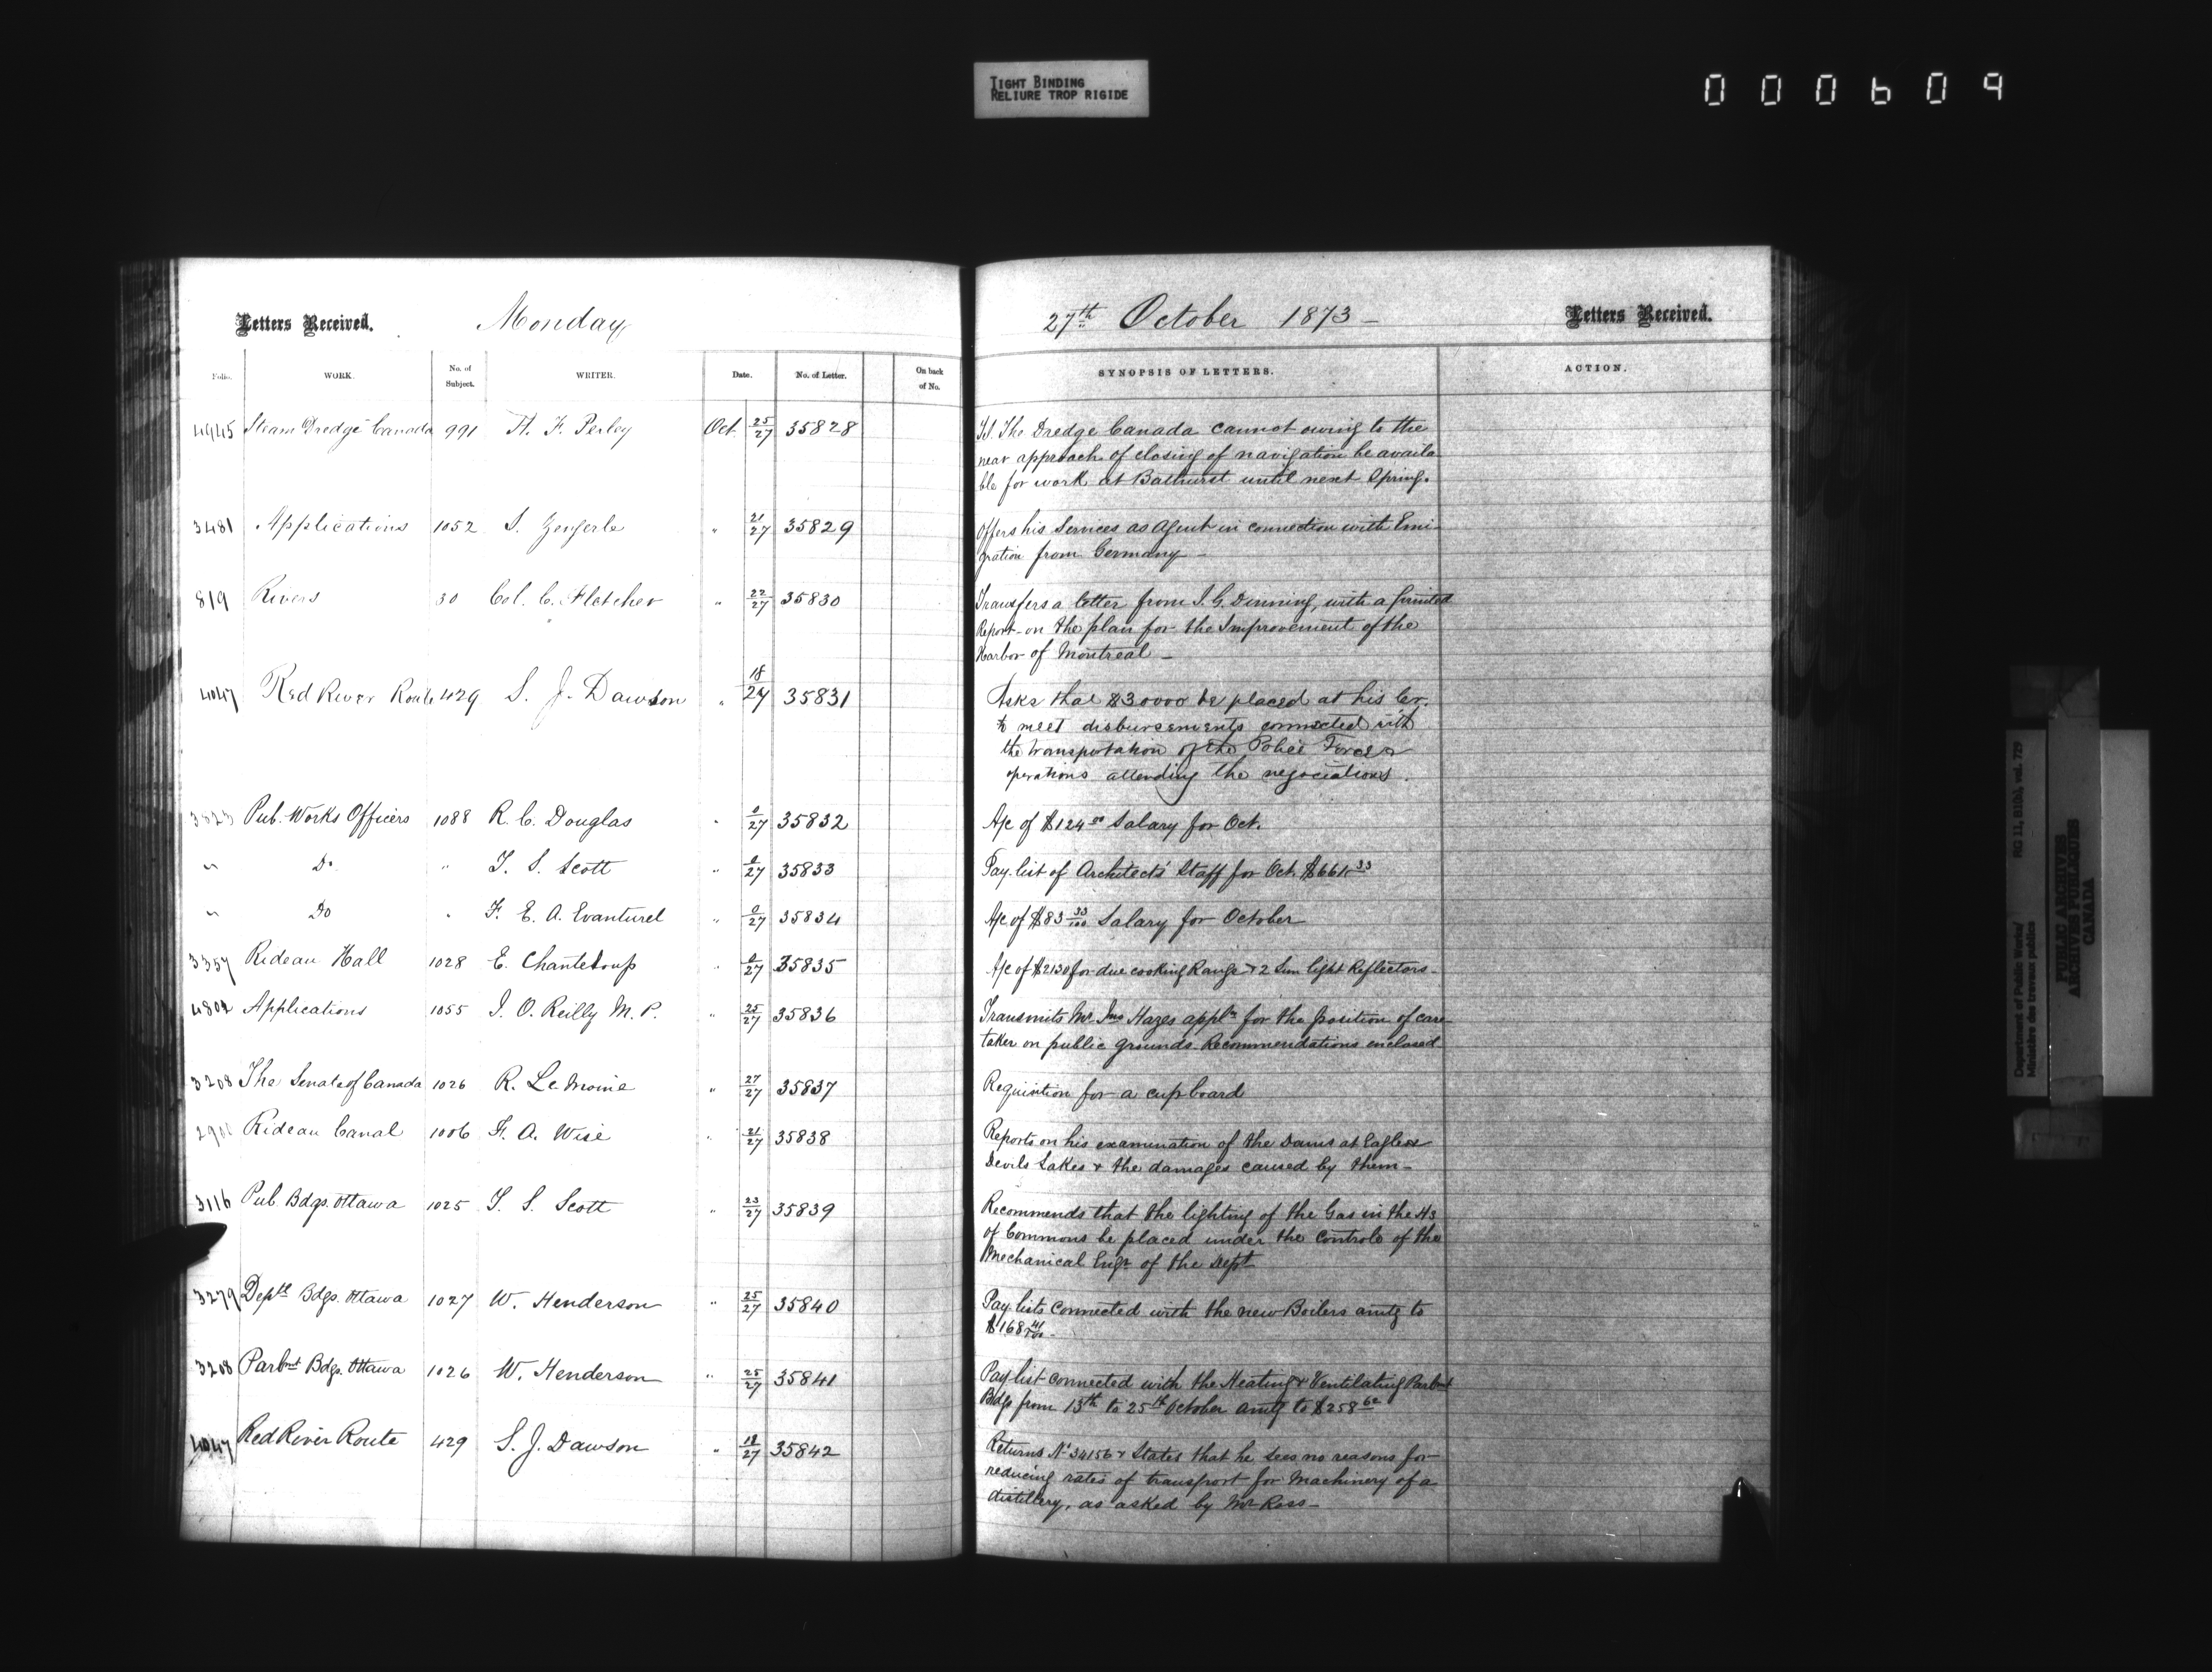 TIGHT BINDING
RELIURE TROP RIGIDE
000609
Letters Received. Monday 27th October 1873 - Letters Received.
Folio. WORK. No. of Subject. WRITER. Date. No. of Letter. On back of No. SYNOPSIS OF LETTERS. ACTION.
4945 Steam Dredge Canada 991 H. F. Perley Oct. 25/27 35828 The Dredge Canada cannot owing to the
near approach of closing of navigation be availa
ble for work at Bathurst until next Spring.
3481 Applications 1052 S. " 21/27 35829 Offers his Services as Agent in connection with Emi-
gration from Germany -
819 Rivers 30 Col. C. Fletcher " 22/27 35830 Transfers a letter from J. G. Dinning, with a printed
Report on the plan for the Improvement of the
Harbor of Montreal -
4047 Red River Route 429 S. J. Dawson " 18/27 35831 Asks that $30000 be placed at his Cr.
to meet disbursements connected with
the transportation of the Police Force &
operations attending the negociations.
Pub. Works Officers 1088 R. C. Douglas " 0/27 35832 A/c of $124 00 Salary for Oct.
" Do " T. S. Scott " 0/27 35833 Pay list of Architects' Staff for Oct. $661 33
" Do " F. E. A. Evanturel " 0/27 35834 A/c of $83 33/100 Salary for October
3357 Rideau Hall 1028 E. Chanteloup " 0/27 35835 A/c of $2130 for due cooking Range & 2 Sun light Reflectors -
4802 Applications 1055 J. O. Reilly M. P. " 25/27 35836 Transmits Mr. Jno Hazes appln for the position of care-
taker on public grounds. Recommendations enclosed
3208 The Senate of Canada 1026 R. Le Moine " 27/27 35837 Requisition for a cupboard
Rideau Canal 1006 F. A. Wise " 21/27 35838 Reports on his examination of the Dams at Eagle &
Devils Lakes & the damages caused by them -
3116 Pub. Bdgs. Ottawa 1025 T. S. Scott " 23/27 35839 Recommends that the lighting of the Gas in the Hs
of Commons be placed under the Controls of the
Mechanical Engr of the Dept
3279 Deptl Bdgs. Ottawa 1027 W. Henderson " 25/27 35840 Pay lists connected with the new Boilers amtg to
$168 41/100 -
3208 Parlmt Bdgs. Ottawa 1026 W. Henderson " 25/27 35841 Pay list connected with the Heating & Ventilating Parlmt
Bdgs from 13th to 25th October amtg to $258 62
4047 Red River Route 429 S. J. Dawson " 18/27 35842 Returns No 34156 & States that he sees no reasons for
reducing rates of transport for Machinery of a
distillery, as asked by Mr Ross -
Department of Public Works/
Ministère des travaux publics
RG 11, B1(b), vol. 729
PUBLIC ARCHIVES
ARCHIVES PUBLIQUES
CANADA